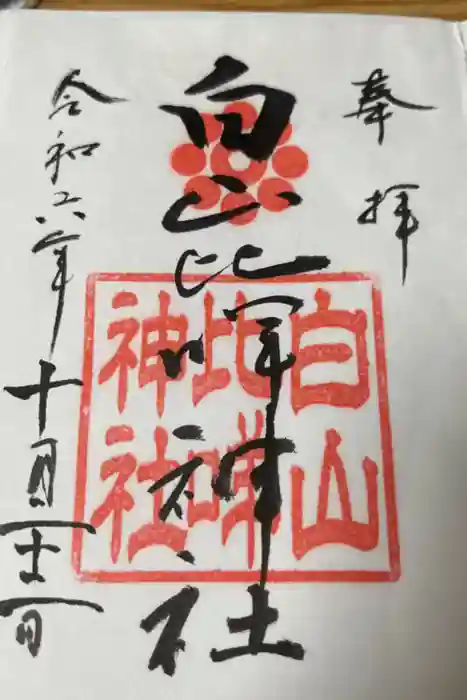 奉拝
白山比咩神社
白山
比咩
神社
令和六年十月